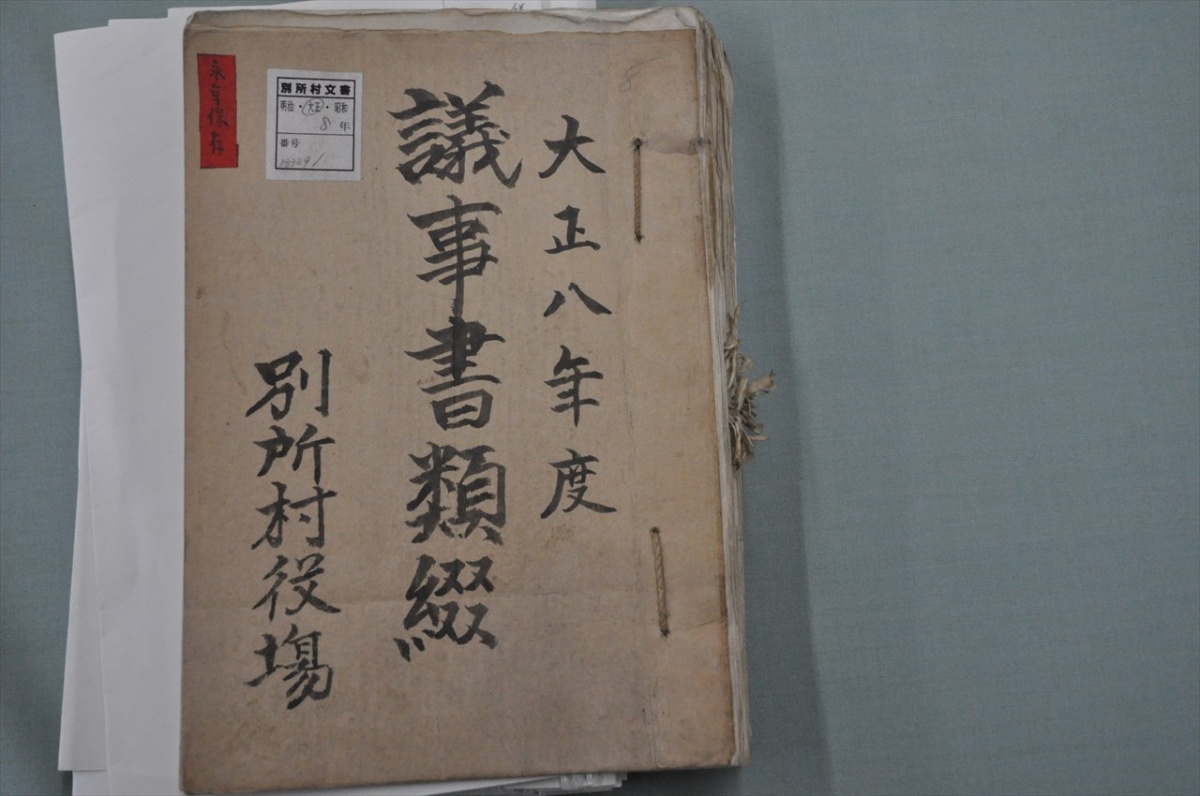 大正八年度
議事書類綴
別所村役場
別所村文書
明治・大正・昭和
8 年
番号
永年保存